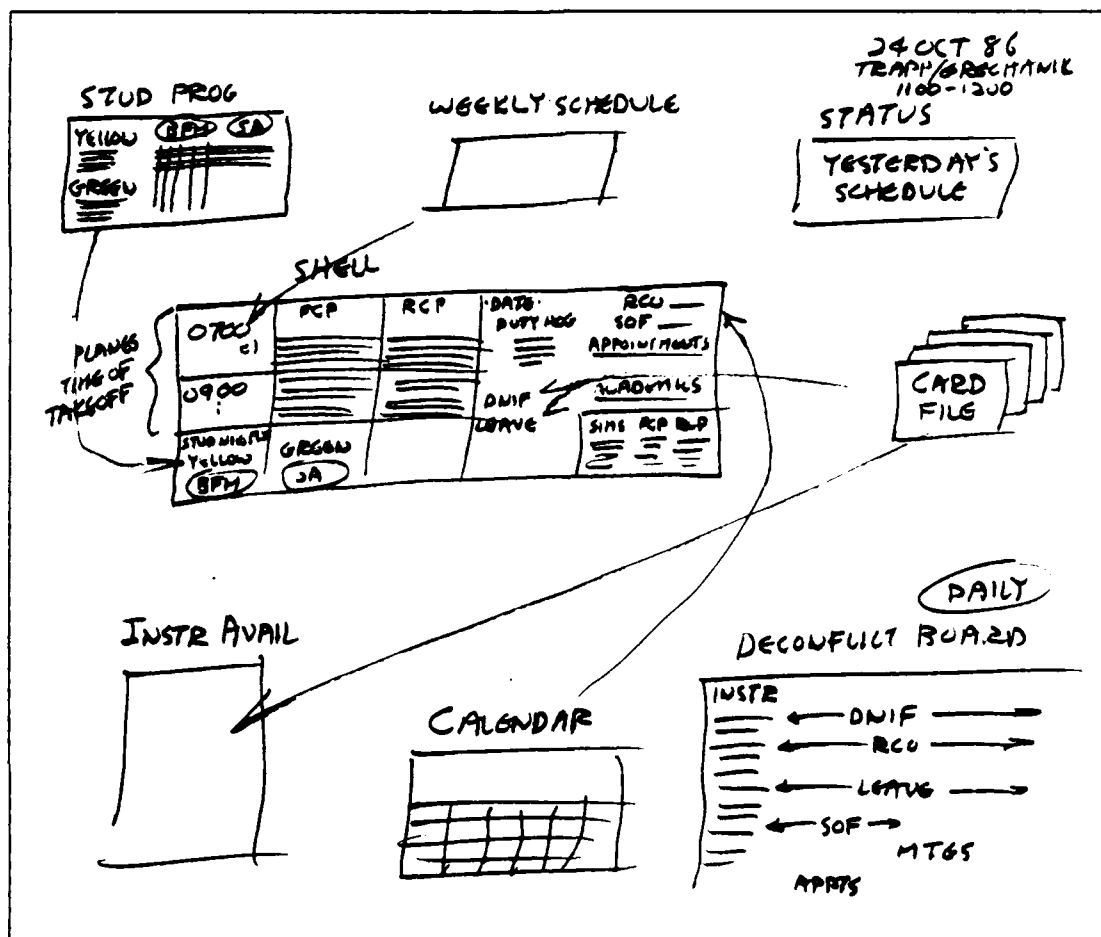 24 OCT 86
TRAPP/GRECHANIK
1100-1200
STUD PROG
YELLOW BFM SA
GREEN
WEEKLY SCHEDULE
STATUS
YESTERDAY'S
SCHEDULE
SHELL
PLANES
TIME OF
TAKEOFF
0700
0900
FCP
RCP
DATE
DUTY HOG
RCU
SOF
APPOINTMENTS
ACADEMICS
DNIF
LEAVE
SIMS FCP RCP
YELLOW
BFM
GREEN
SA
CARD
FILE
INSTR AVAIL
CALENDAR
DAILY
DECONFLICT BOARD
INSTR
DNIF
RCU
LEAVE
SOF
MTGS
APPTS